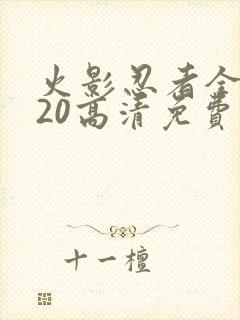 火影忍者全
20高清免費
十一檀